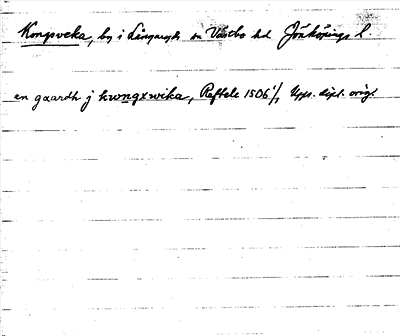 Kongsveka, by i Långaryds sn Västbo hd Jönköpings l
en gaardh j kwngxwika, Reftele 1506 1/1 Upps. dipl. orig.